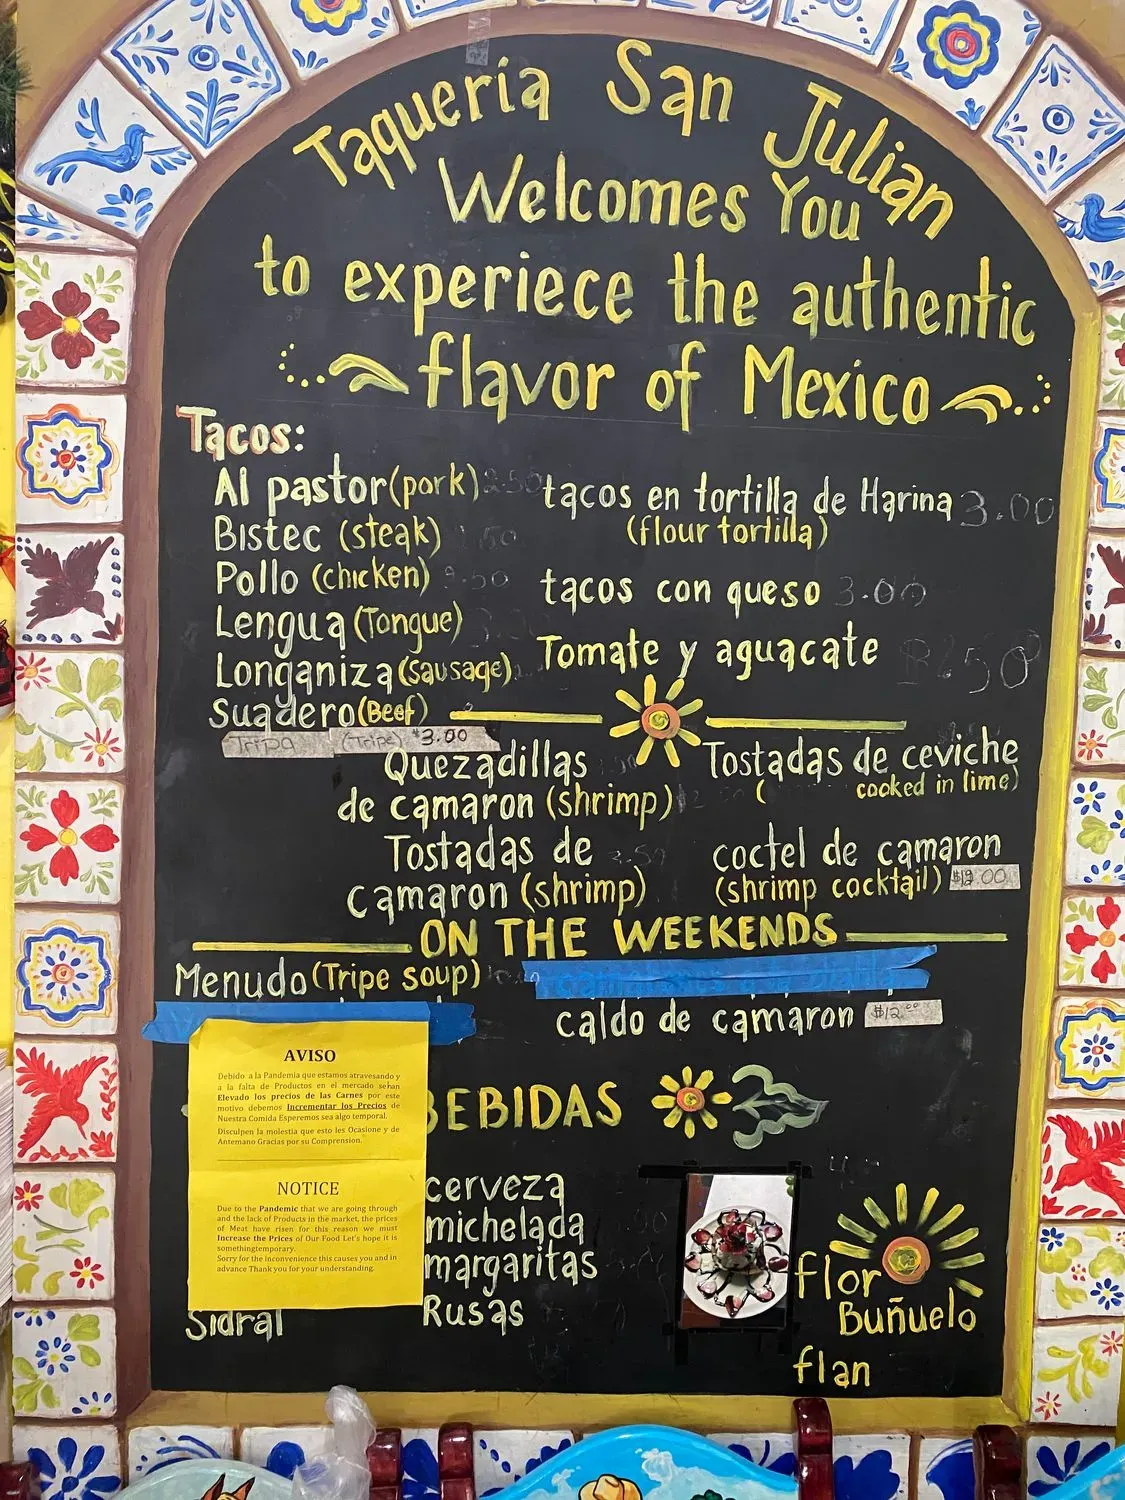 Taqueria San Julian
Welcomes You
to experiece the authentic
flavor of Mexico
Tacos:
Al pastor (pork) 2.50
Bistec (steak)
Pollo (chicken)
Lengua (Tongue)
Longaniza (Sausage)
Suadero (Beef)
Tripa (Tripe) $3.00
tacos en tortilla de Harina 3.00
(flour tortilla)
tacos con queso 3.00
Tomate y aguacate
Quezadillas
de camaron (shrimp)
Tostadas de
camaron (shrimp)
Tostadas de ceviche
( cooked in lime)
coctel de camaron
(shrimp cocktail)
ON THE WEEKENDS
Menudo (Tripe soup)
caldo de camaron $12.00
AVISO
Debido a la Pandemia que estamos atravesando y
a la falta de Productos en el mercado sehan
Elevado los precios de las Carnes por este
motivo debemos Incrementar los Precios de
Nuestra Comida Esperemos sea algo temporal.
Disculpen la molestia que esto les Ocasione y de
Antemano Gracias por su Comprension.
NOTICE
Due to the Pandemic that we are going through
and the lack of Products in the market, the prices
of Meat have risen for this reason we must
Increase the Prices of Our Food Let's hope it is
somethingtemporary.
Sorry for the inconvenience this causes you and in
advance Thank you for your understanding.
Sidral
BEBIDAS
cerveza
michelada
margaritas
Rusas
flor
Buñuelo
flan